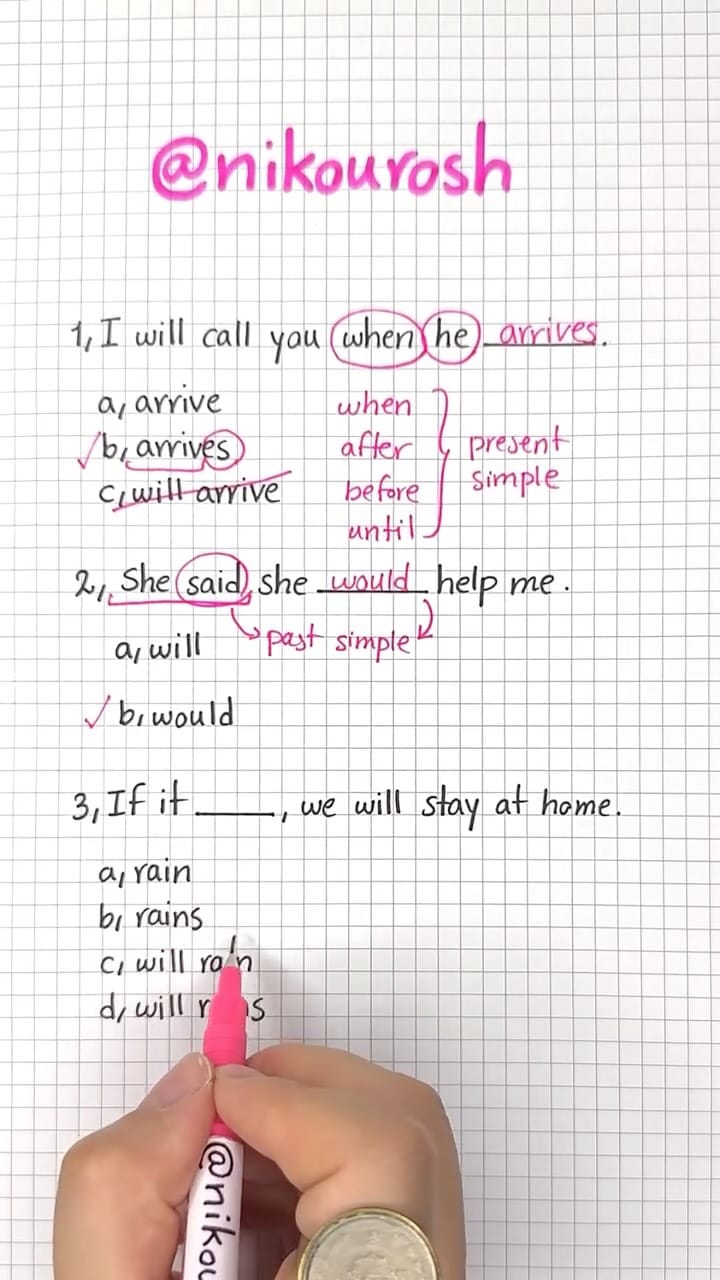 @nikourosh
1, I will call you when he arrives.
a, arrive
b, arrives
c, will arrive
when
after
before
until
present
simple
2, She said, she would help me.
past simple
a, will
b, would
3, If it ____, we will stay at home.
a, rain
b, rains
c, will rain
d, will
@nikou